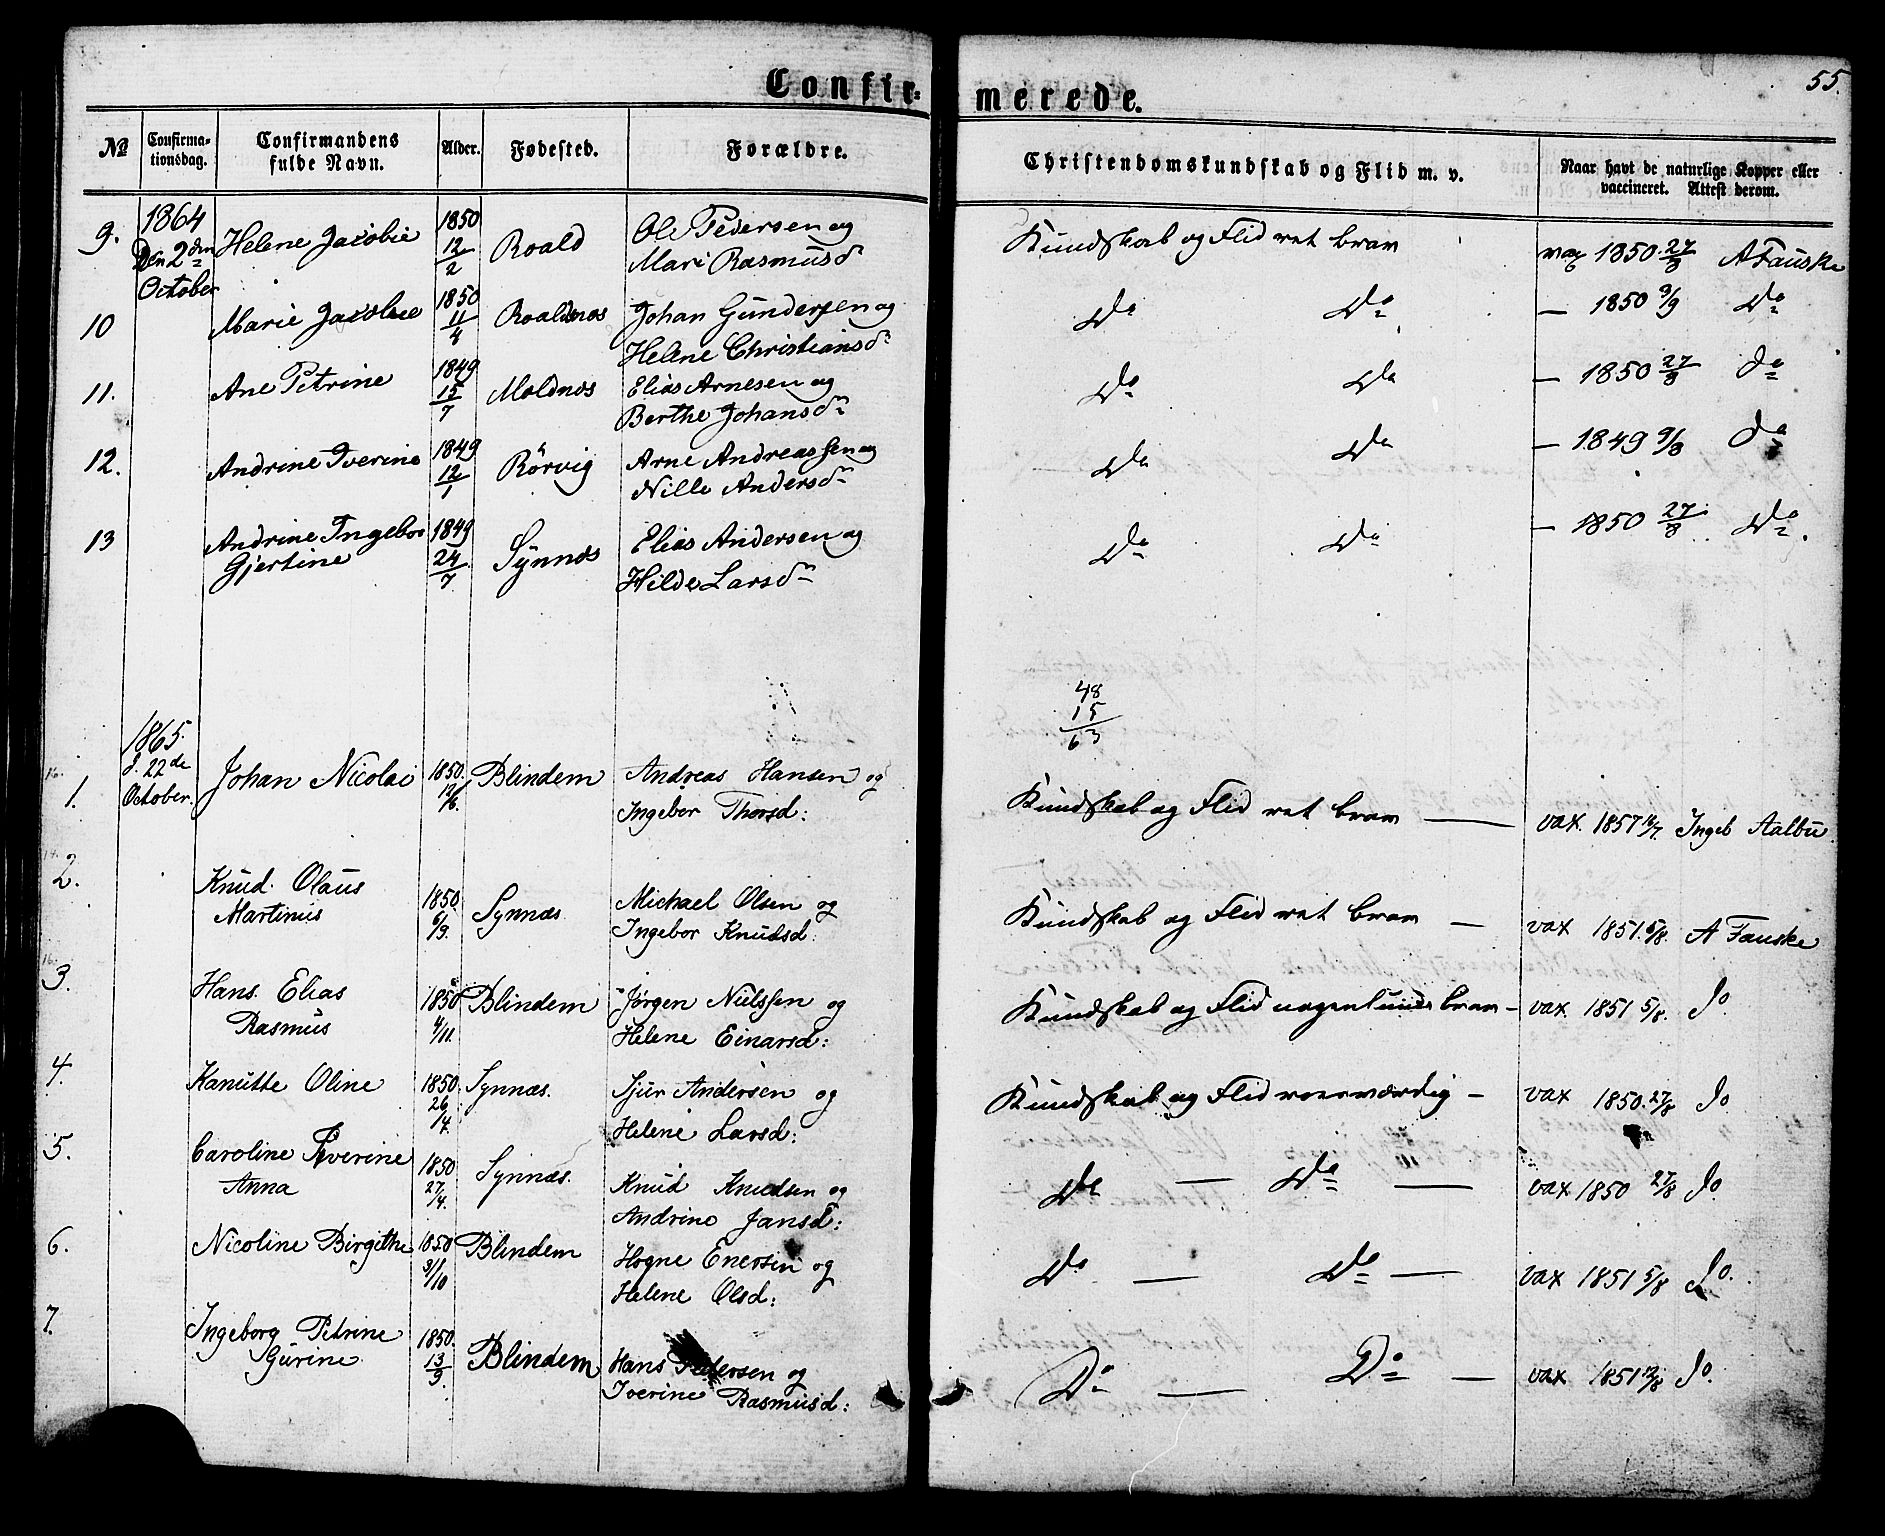 Confir-
merede.
55.
№ Confirma-
tionsdag. Confirmandens
fulde Navn. Alder. Fødested. Forældre.
Christendomskundskab og Flid m. v. Naar havt de naturlige Kopper eller
vaccineret. Attest derom.
9. 1864
Den 2den
October Helene Jacobie 1850
12/2 Roald Ole Pedersen og
Mari Rasmusdr
Kundskab og Flid ret brav vax 1850 27/8 A Fauske
10 Marie Jacobie 1850
11/4 Roaldnæs Johan Gundersen og
Helene Christiansdr
Do Do — 1850 9/9 Do
11. Ane Petrine 1849
15/7 Moldnæs Elias Arnesen og
Berthe Johansdr
Do Do — 1850 27/8 do
12. Andrine Iverine 1849
12/1 Rørvig Arne Andreassen og
Nille Andersdr
Do Do — 1849 9/8 do
13 Andrine Ingebor
Gjertine 1849
24/7 Synnæs Elias Andersen og
Hilde Larsdr
Do Do — 1850 27/8 Do.
48
15
63
1. 1865.
d. 22de
October. Johan Nicolai 1850.
12/6. Blindem Andreas Hansen og
Ingebor Thorsd:
Kundskab og Flid ret brav — vax. 1857 12/7. Ingeb Aalbu
2. Knud Olaus
Martinus 1850
6/9. Synnæs Michael Olsen og
Ingebor Knudsd:
Kundskab og Flid ret brav — vax 1851. 5/8. A Fauske
3. Hans Elias
Rasmus 1850
4/11. Blindem Jørgen Nielssen og
Helene Einarsd:
Kundskab og Flid nogenlunde brav — vax 1851 5/8. do
4. Kanutte Oline 1850.
26/4. Synnæs. Sjur Andersen og
Helene Larsd:
Kundskab og Flid roesværdig — vax 1850. 27/8 do
5. Caroline Iverine
Anna 1850
27/4. Synnæs. Knud Knudsen og
Andrine Jansd:
Do — Do — vax 1850 27/8 do
6. Nicoline Birgithe 1850
31/10 Blindem Hogne Enersen og
Helene Olsd:
Do — Do — vax 1851 5/8 do.
7. Ingeborg Petrine
Gurine 1850.
13/9. Blindem Hans Pedersen og
Iverine Rasmusd:
Do — Do — vax 1851 12/8 do.